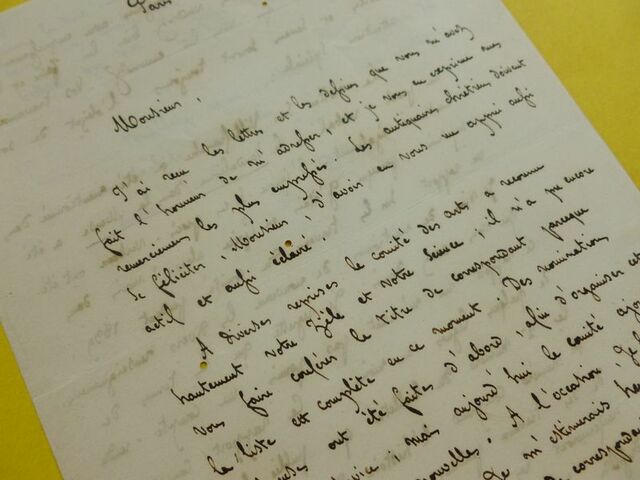 Paris
Monsieur,
J'ai reçu les lettres et les dessins que vous m'avez
fait l'honneur de m'adresser, et je vous en exprime mes
remerciemens les plus empressés. Les antiquaires chrétiens doivent
se féliciter, Monsieur, d'avoir en vous un appui aussi
actif et aussi éclairé.
A diverses reprises le comité des arts a reconnu
hautement votre zèle et votre science ; il n'a pu encore
vous faire conférer le titre de correspondant parceque
la liste est complète en ce moment. Des nominations
ont été faites d'abord, afin d'organiser et
mais aujourd'hui le comité
A l'occasion
je m'estimerais
correspondant